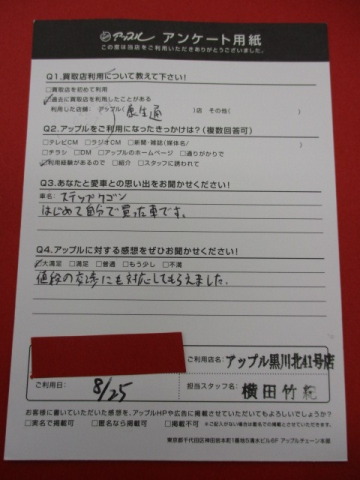 アップル アンケート用紙
この度は当店をご利用いただきありがとうございました。
Q1.買取店利用について教えて下さい!
□買取店を初めて利用
☑過去に買取店を利用したことがある
利用した店舗: アップル( )店 その他( )
Q2.アップルをご利用になったきっかけは?(複数回答可)
□テレビCM □ラジオCM □新聞・雑誌(媒体名/ )
□チラシ □DM □アップルのホームページ □通りがかりで
☑利用経験があるので □紹介 □スタッフに誘われて
Q3.あなたと愛車との思い出をお聞かせください!
車名: ステップワゴン
はじめて自分で買った車です。
Q4.アップルに対する感想をぜひお聞かせください!
☑大満足 □満足 □普通 □もう少し □不満
値段の交渉にも対応してもらえました。
ご利用店名: アップル黒川北41号店
ご利用日: 8/25
担当スタッフ名: 横田 竹
お客様に書いていただいた感想を、アップルHPや広告に掲載させていただいてもよろしいでしょうか?
□実名で掲載可 □匿名なら掲載可 □掲載不可 ※ご記入がない場合は匿名での掲載とさせていただきます。
東京都千代田区神田岩本町1番地5清水ビル6F アップルチェーン本部